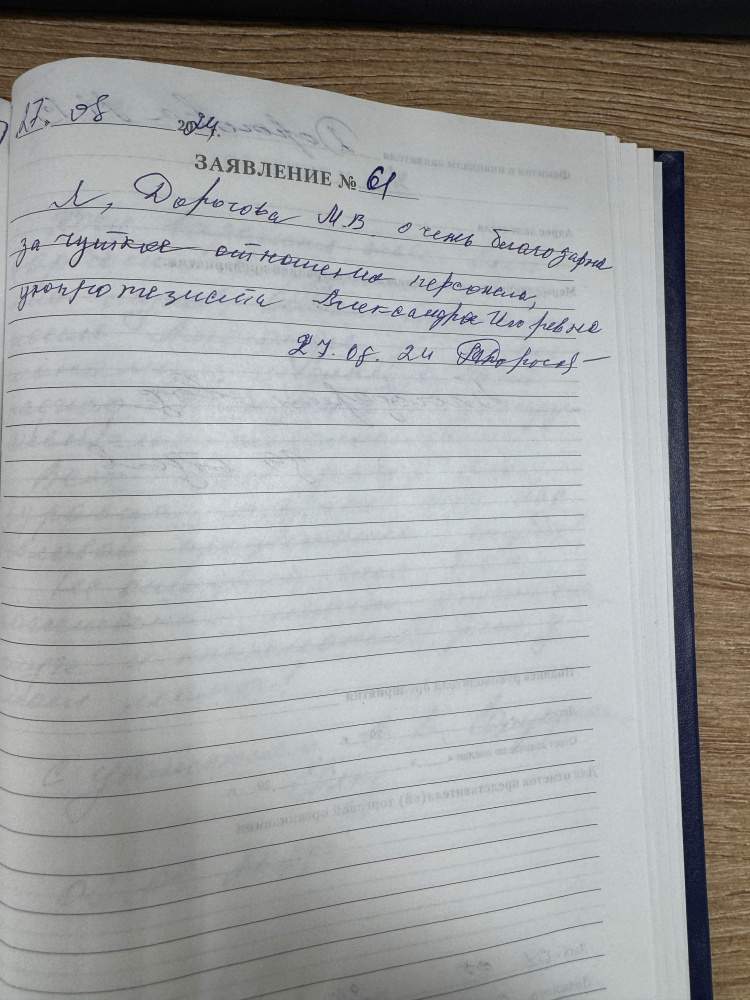 27. 08 2024.
ЗАЯВЛЕНИЕ № 61
Я, Дорогова М.В. очень благодарна
за чуткое отношение персонала,
Александра Игоревна
27. 08. 24